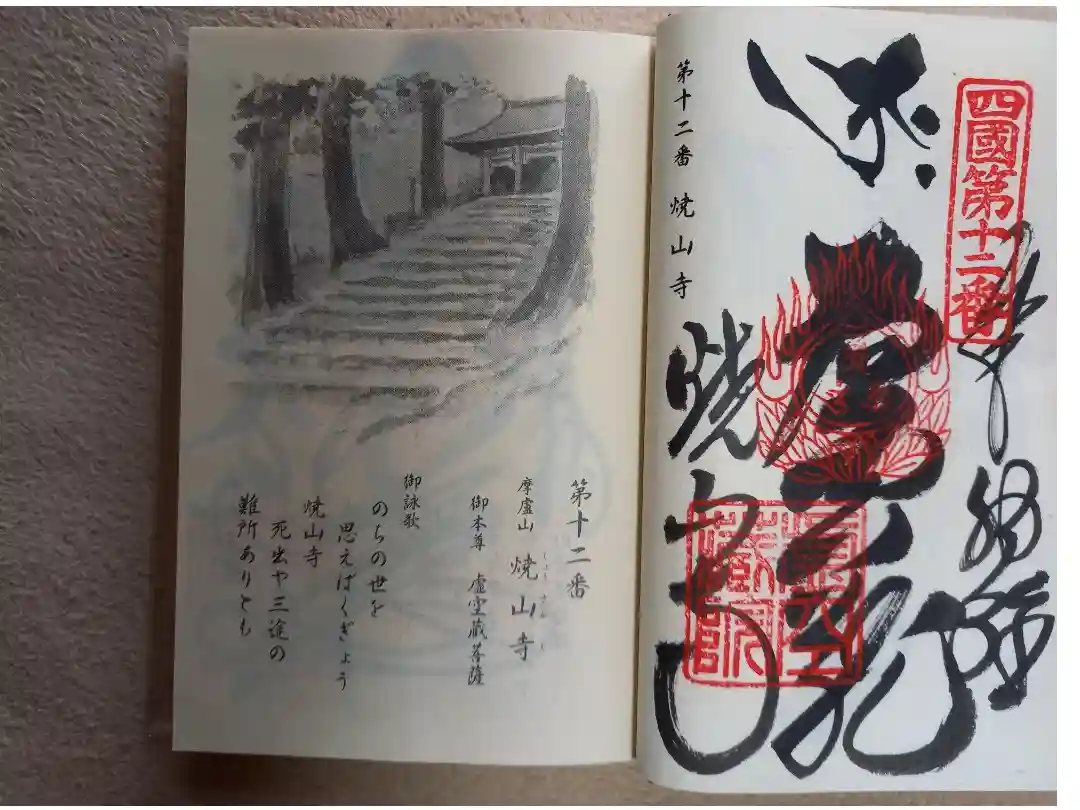 四國第十二番
奉納経
虚空
藏院
焼山寺
第十二番 焼山寺
第十二番
摩廬山 焼山寺
しょうさんじ
御本尊 虚空蔵菩薩
御詠歌
のちの世を
思えばくぎょう
焼山寺
死出や三途の
難所ありとも